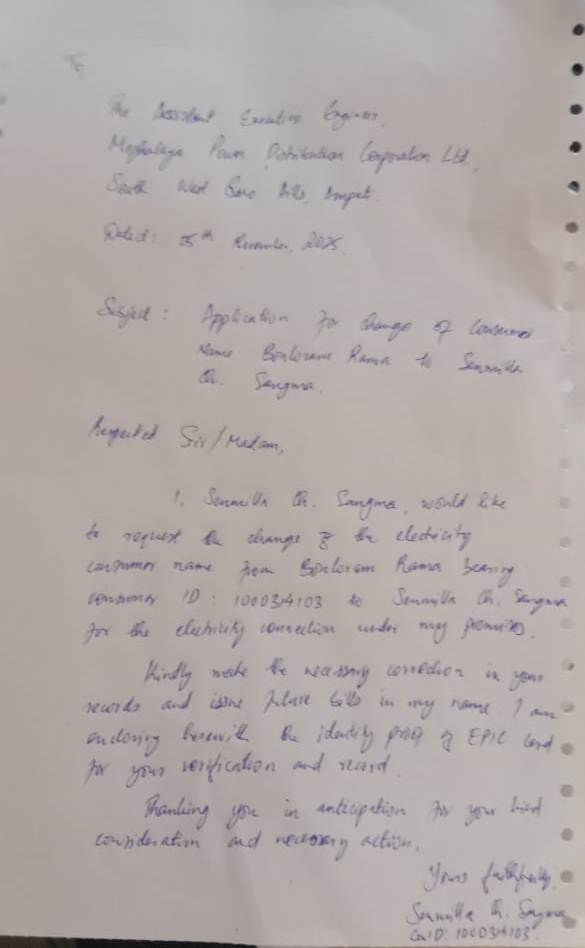 To,
The Assistant Executive Engineer,
Meghalaya Power Distribution Corporation Ltd.,
South West Garo Hills, Ampati.
Dated: 05th November, 2025.
Subject: Application for change of Consumer
Name Rama to Senmilla
Ch. Sangma.
Respected Sir/Madam,
I, Senmilla Ch. Sangma, would like
to request the change of the electricity
consumer name from Rama bearing
consumer ID: to Senmilla Ch. Sangma
for the electricity connection under my premises.
Kindly make the necessary correction in your
records and issue future bills in my name. I am
enclosing herewith the identity proof of EPIC Card
for your verification and record.
Thanking you in anticipation for your kind
consideration and necessary action.
Yours faithfully,
Senmilla Ch. Sangma
Con ID: